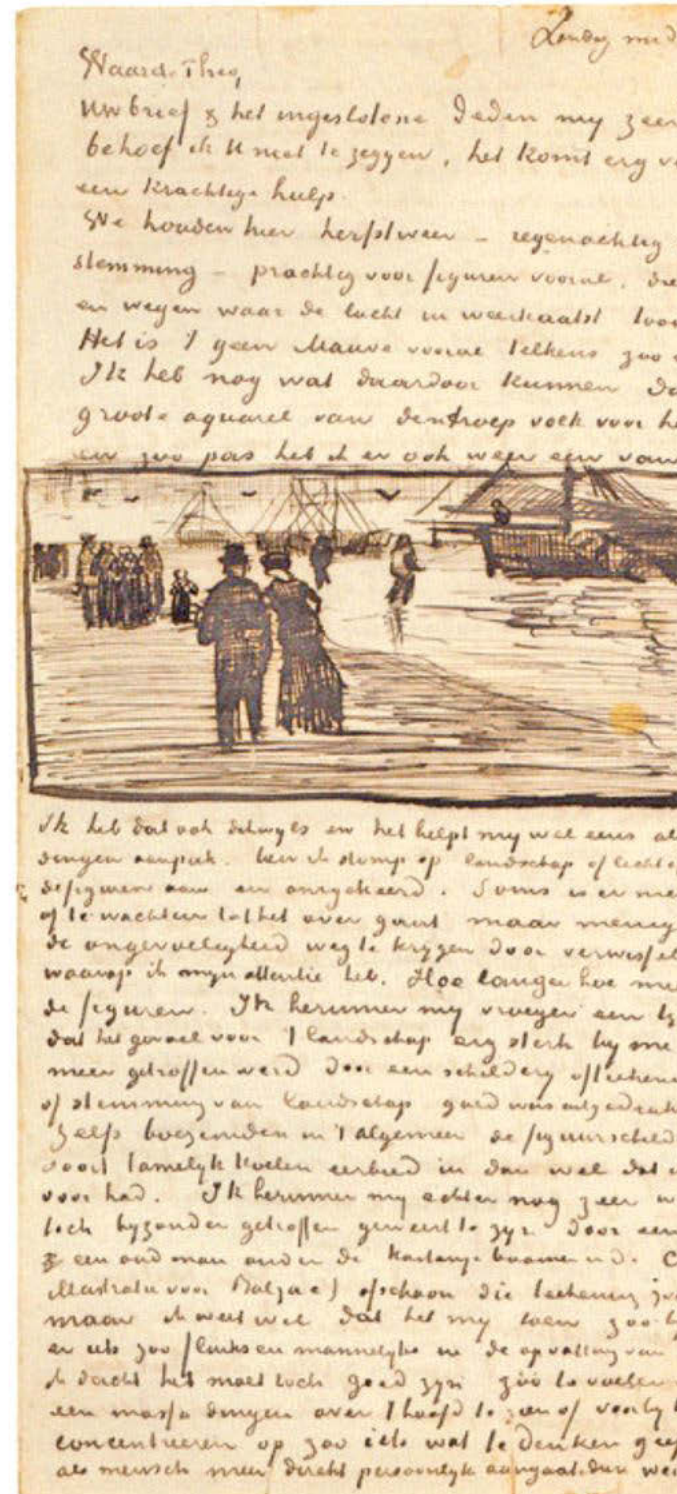 Zondag mid
Waarde Theo,
Uw brief & het ingeslotene deden my zeer
behoef ik U niet te zeggen, het komt erg v
een krachtige hulp.
We houden hier herfstweer – regenachtig
stemming – prachtig voor figuren vooral, die
en wegen waar de lucht in weerkaatst
Het is 't geen Mauve vooral telkens zoo
Ik heb nog wat daardoor kunnen
groote aquarel van den troep volk voor
en zoo pas heb ik er ook weer een van
Ik heb dat ook dikwyls en het helpt my wel eens al
dingen aanpak. ben ik stomp op landschap of
de figuren aan en omgekeerd. Soms is er
of te wachten tot het over gaat maar menig
de ongevoeligheid weg te krygen door verwissel
waarop ik myn attentie heb. Hoe langer hoe me
de figuren. Ik herinner my vroeger een
dat het gevoel voor 't landschap erg sterk by me
meer getroffen werd door een schildery of
of stemming van landschap goed was
Zelfs boezemden in 't algemeen de figuurschild
soort tamelyk koelen eerbied in dan wel dat
voor had. Ik herinner my echter nog zeer
toch byzonder getroffen geweest te zyn door een
een oud man onder de kastanje boomen
illustratie voor Balzac) ofschoon die teekening
maar ik weet wel dat het my toen zoo
er iets zoo flinks en mannelyks in de opvatting van
ik dacht het moet toch goed zyn zóó te voelen
een massa dingen over 't hoofd te zien of voorby
concentreeren op zoo iets wat te denken geef
als mensch meer direkt persoonlyk aangaat dan wei